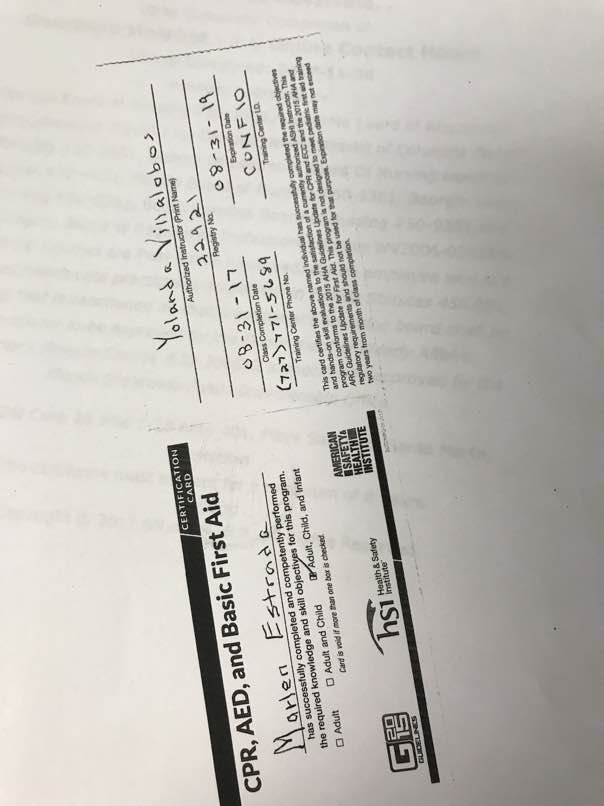 CERTIFICATION
CARD
CPR, AED, and Basic First Aid
Marlen Estrada
has successfully completed and competently performed
the required knowledge and skill objectives for this program.
☐ Adult ☐ Adult and Child ☑ Adult, Child, and Infant
Card is void if more than one box is checked.
G2015
GUIDELINES
hsi Health & Safety
Institute
AMERICAN
SAFETY &
HEALTH
INSTITUTE
Yolanda Villalobos
Authorized Instructor (Print Name)
22921
Registry No.
08-31-17 08-31-19
Class Completion Date Expiration Date
(727)771-5689 CONF10
Training Center Phone No. Training Center I.D.
This card certifies the above named individual has successfully completed the required objectives
and hands-on skill evaluations to the satisfaction of a currently authorized ASHI Instructor. This
program conforms to the 2015 AHA Guidelines Update for CPR and ECC and the 2015 AHA and
ARC Guidelines Update for First Aid. This program is not designed to meet pediatric first aid training
regulatory requirements and should not be used for that purpose. Expiration date may not exceed
two years from month of class completion.